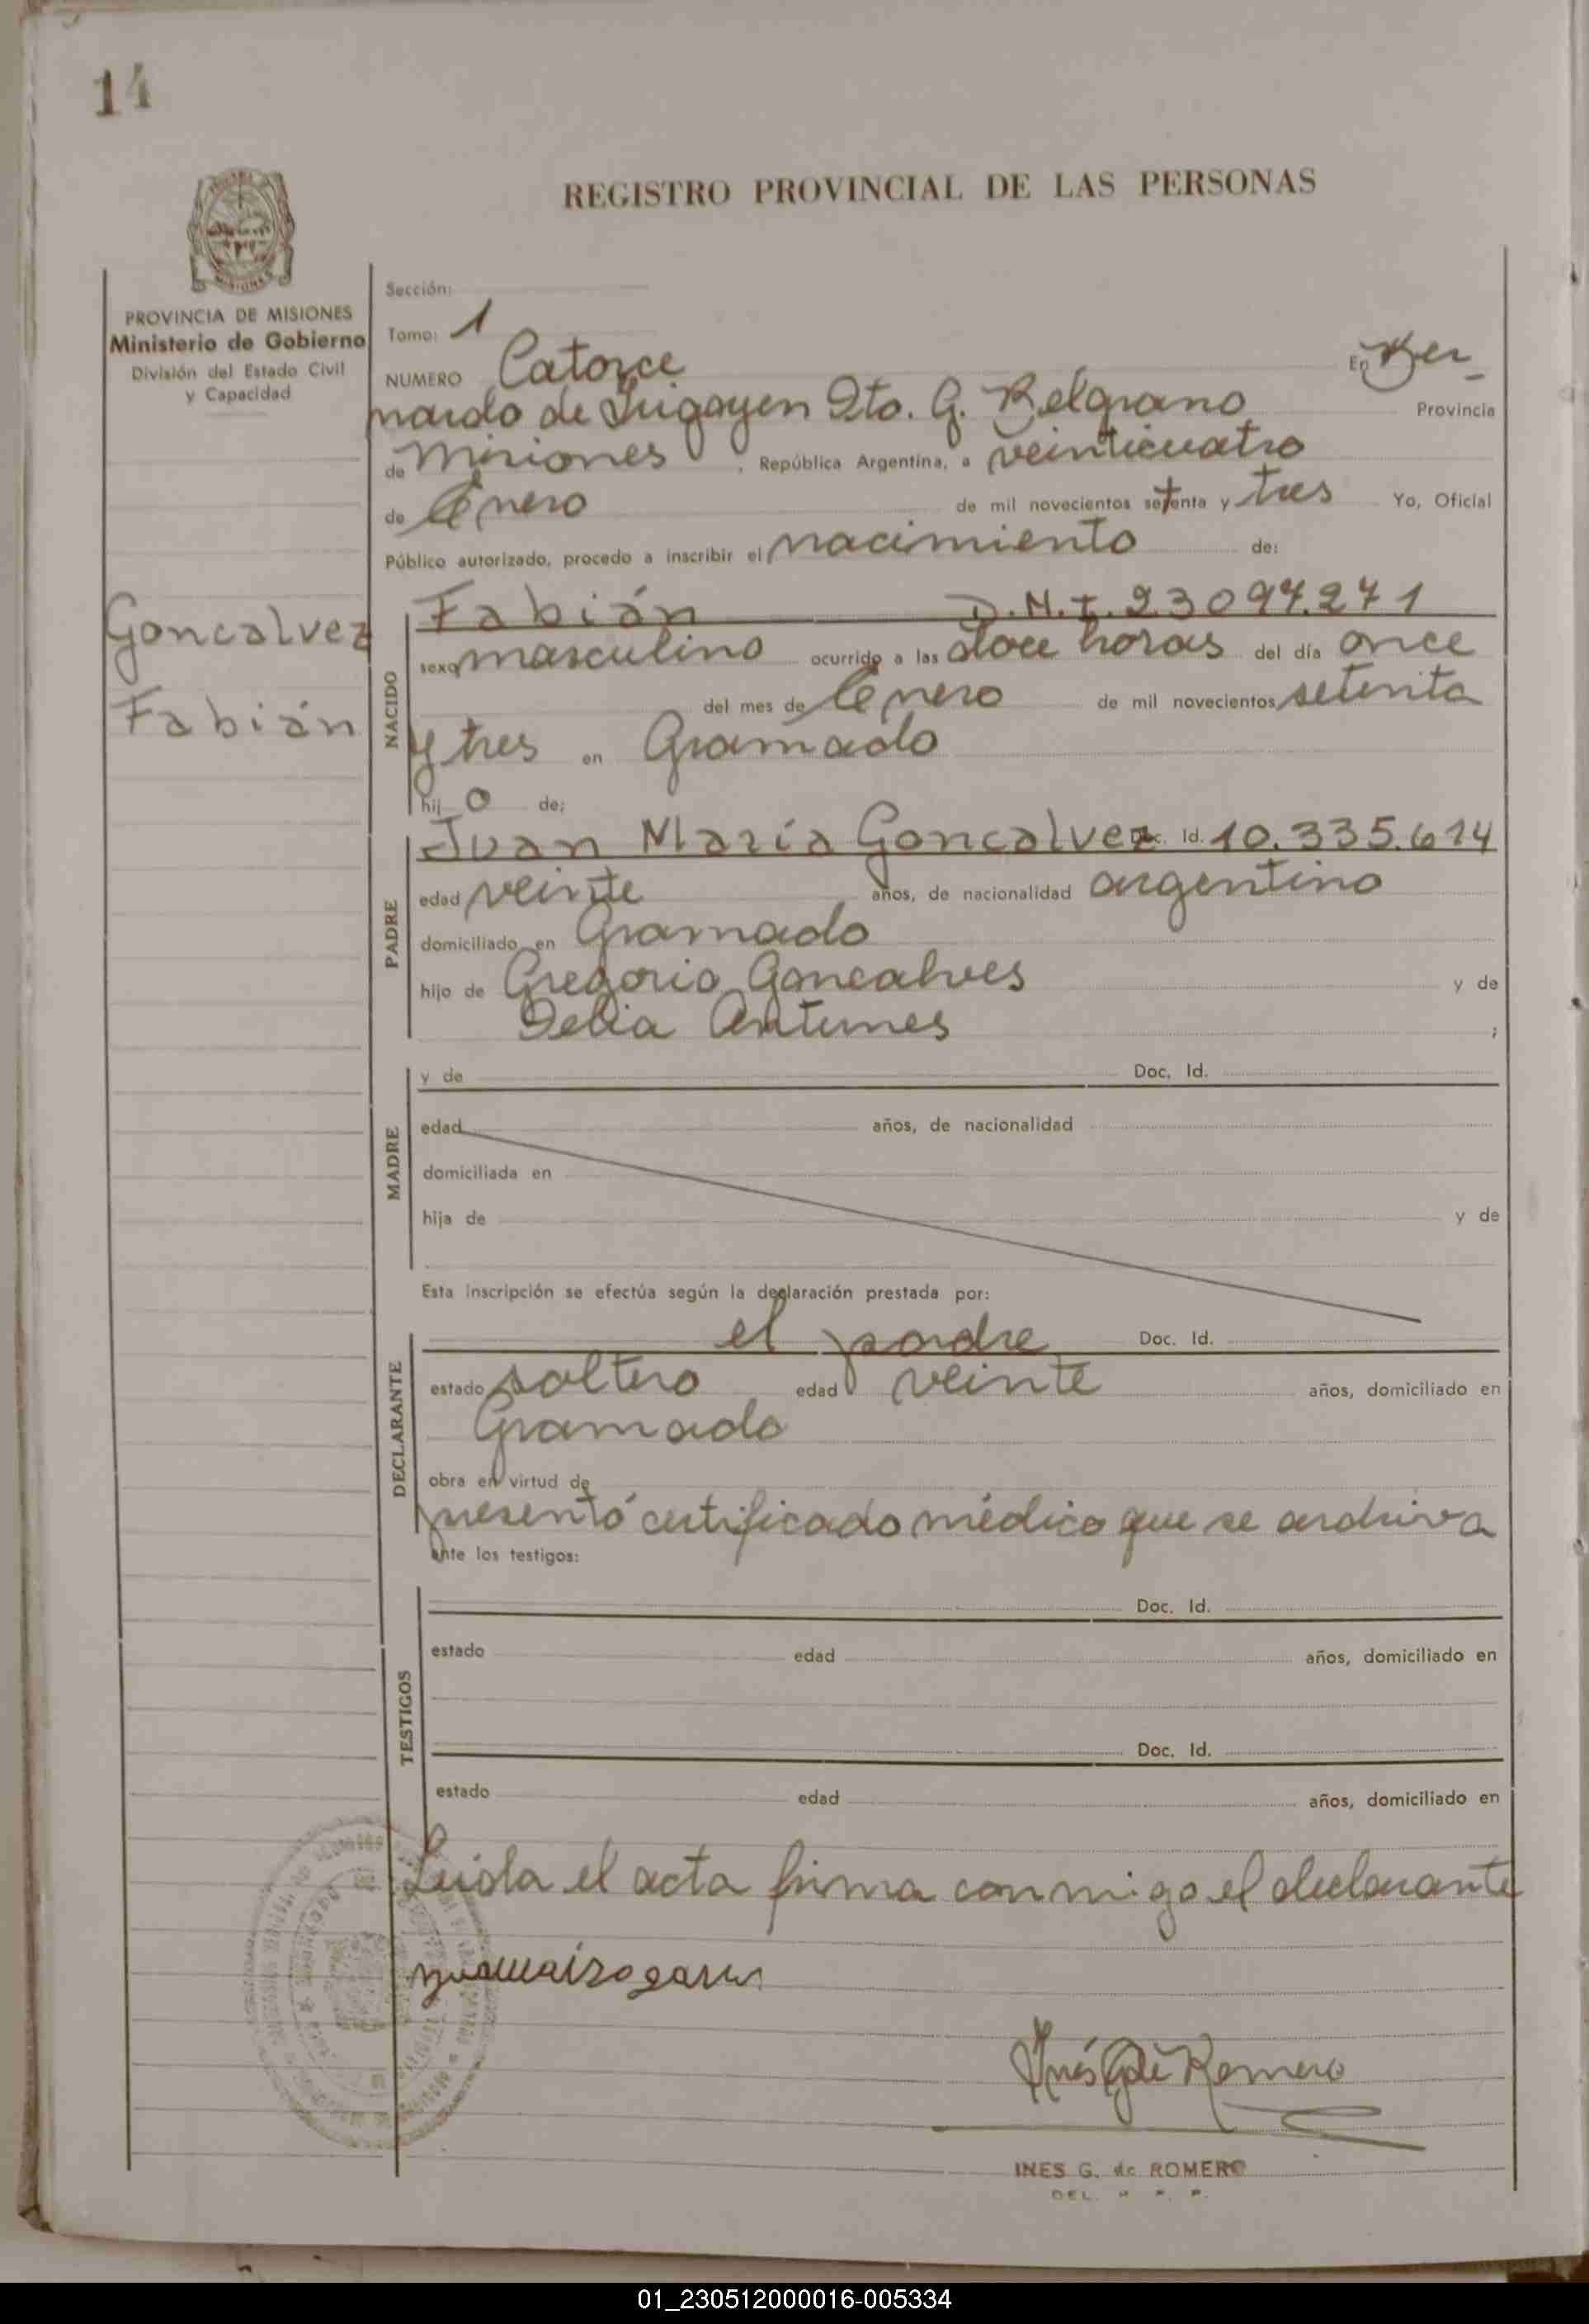 14
REGISTRO PROVINCIAL DE LAS PERSONAS
MISIONES
PROVINCIA DE MISIONES
Ministerio de Gobierno
División del Estado Civil
y Capacidad
Goncalvez
Fabián
Sección:
Tomo: 1
NUMERO Catorce En Ber_
nardo de Irigoyen Dto. G. Belgrano Provincia
de Misiones, República Argentina, a veinticuatro
de Enero de mil novecientos setenta y tres Yo, Oficial
Público autorizado, procedo a inscribir el nacimiento de:
NACIDO
Fabián D.N.I. 23094.271
sexo masculino ocurrido a las doce horas del día once
del mes de Enero de mil novecientos setenta
y tres en Gramado
hij o de:
PADRE
Juan María Goncalvez Doc. Id. 10.335.614
edad veinte años, de nacionalidad argentino
domiciliado en Gramado
hijo de Gregorio Goncalves y de
Delia Antunes ;
MADRE
y de Doc. Id.
edad años, de nacionalidad
domiciliada en
hija de y de
Esta inscripción se efectúa según la declaración prestada por:
DECLARANTE
el padre Doc. Id.
estado soltero edad veinte años, domiciliado en
Gramado
obra en virtud de
presentó certificado médico que se archiva
ante los testigos:
TESTIGOS
Doc. Id.
estado edad años, domiciliado en
Doc. Id.
estado edad años, domiciliado en
Leida el acta firma conmigo el declarante
Inés G de Romero
INES G. de ROMERO
DEL.
01_230512000016-005334